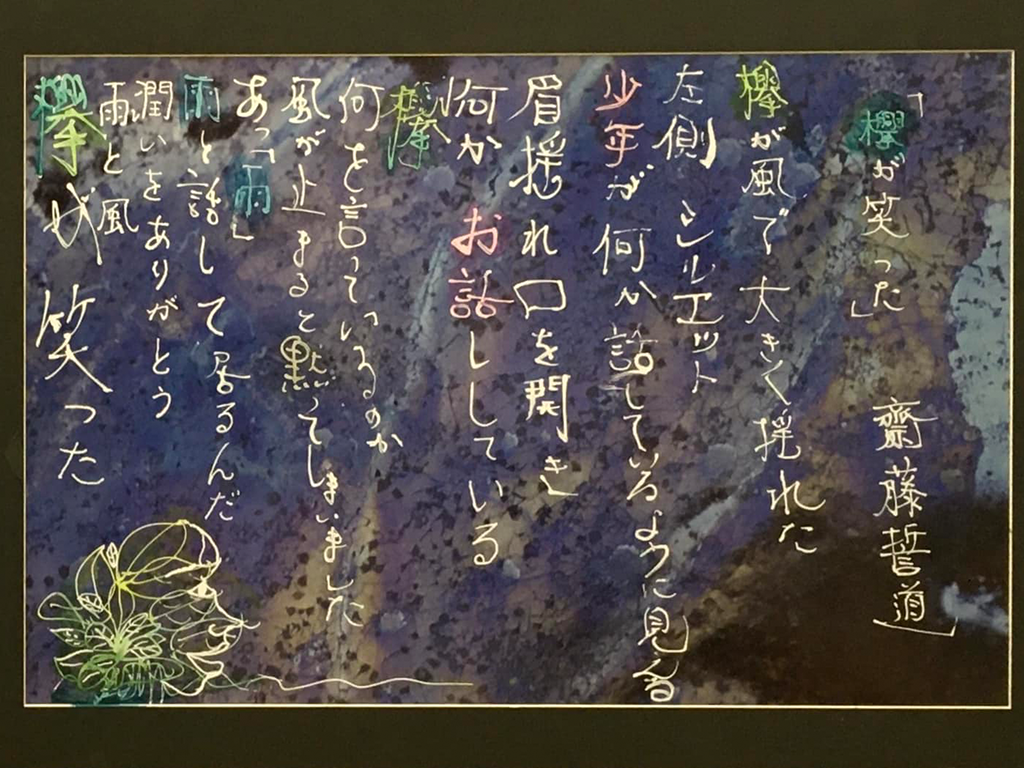 「欅が笑った」 齋藤哲道
欅が風で大きく揺れた
左側 シルエット
少年が何か話しているように見る
眉揺れ口を開き
何かお話ししている
欅
何を言っているのか
風が止まると黙ってしまいました
あっ「雨」
雨と話して居るんだ
潤いをありがとう
雨と風
欅が笑った